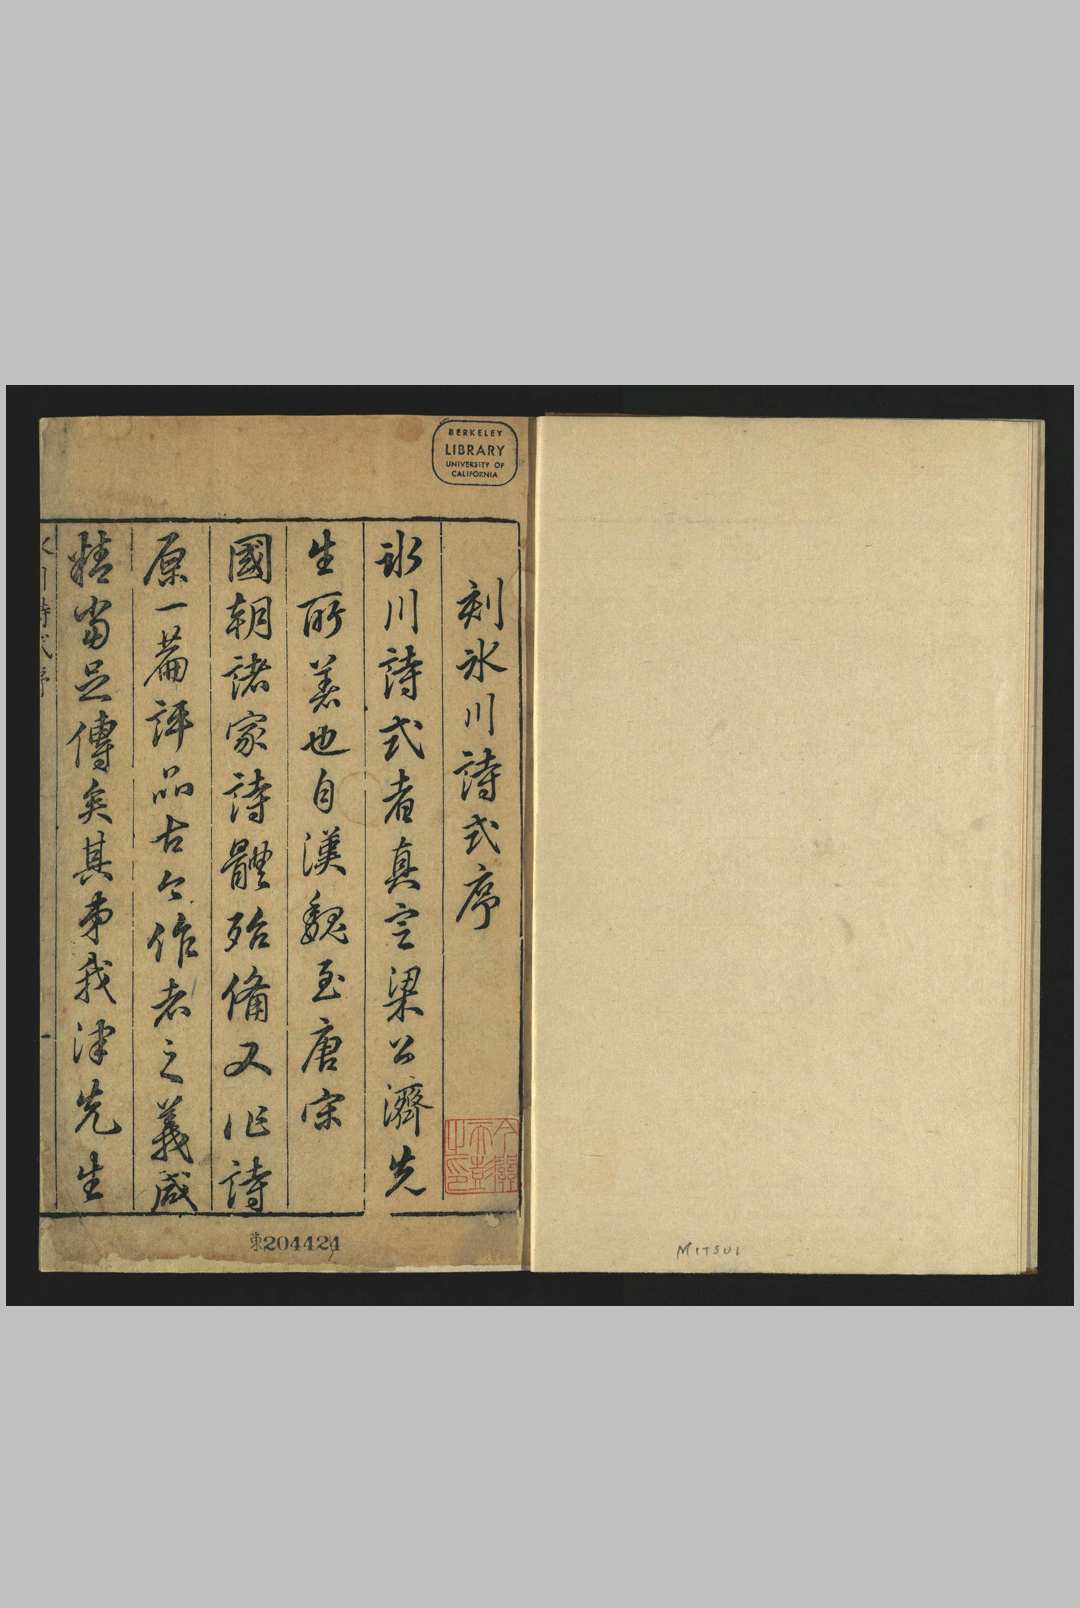 刻冰川詩式序
冰川詩式者真定梁公濟先
生所著也自漢魏至唐宋
國朝諸家詩體殆備又作詩
原一篇評品古今作者之義咸
精當足傳矣其弟我津先生
冰川詩式序
一
BERKELEY
LIBRARY
UNIVERSITY OF
CALIFORNIA
東204424
MITSUI